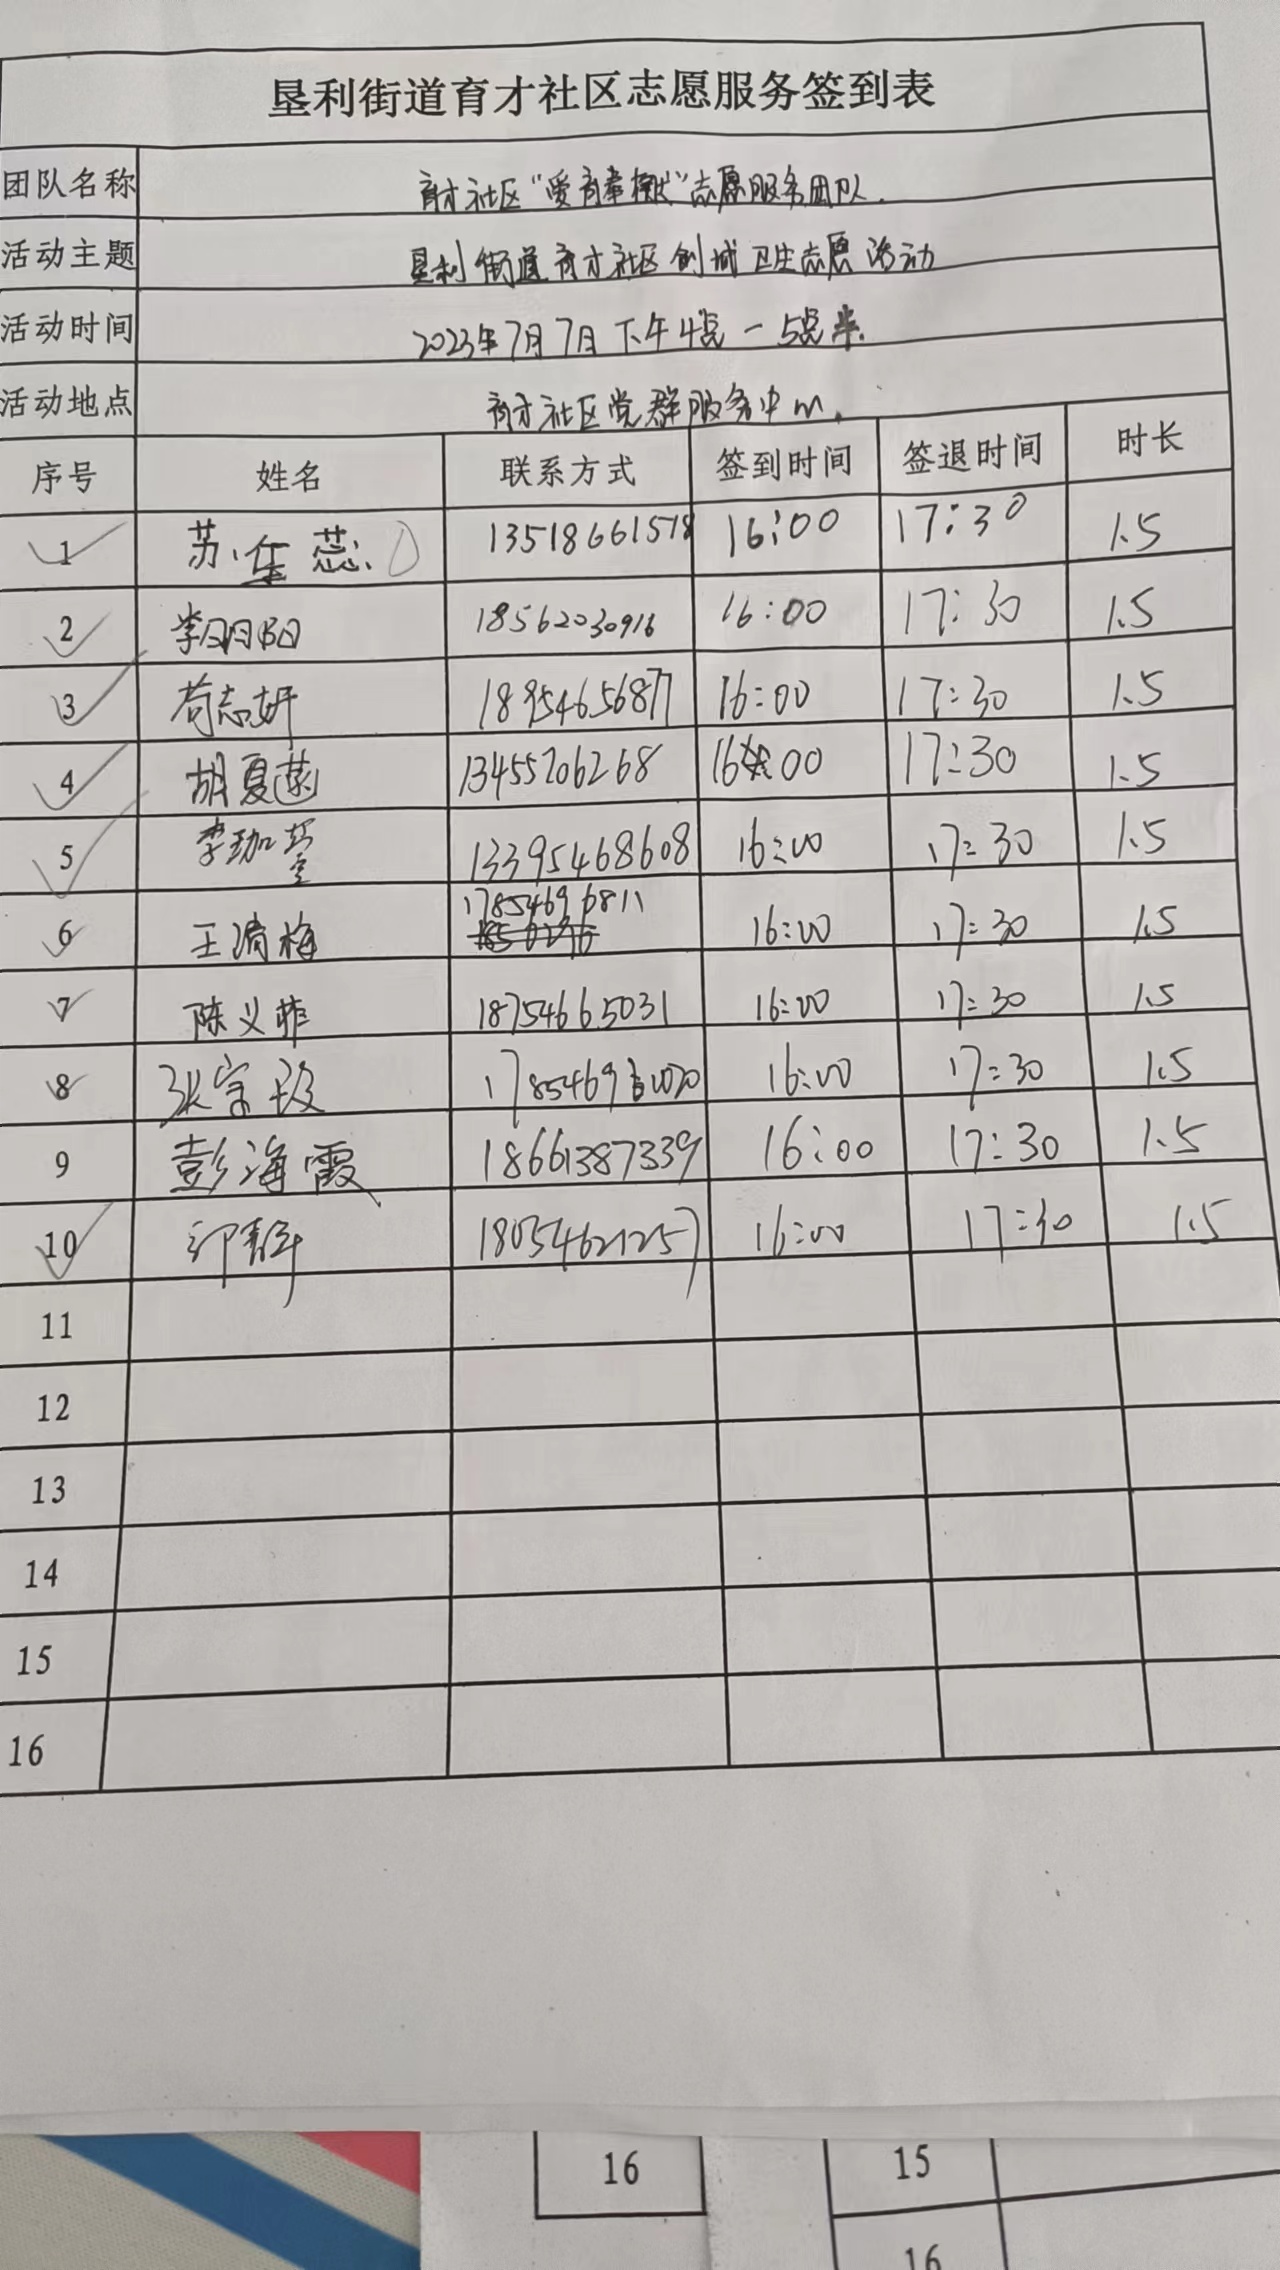 垦利街道育才社区志愿服务签到表
团队名称 育才社区"爱育幸福"志愿服务团队.
活动主题 垦利街道育才社区创城卫生志愿活动
活动时间 2023年7月7日下午4点-5点半.
活动地点 育才社区党群服务中心.
序号 姓名 联系方式 签到时间 签退时间 时长
1 苏 蕊 13518661578 16:00 17:30 1.5
2 李明阳 18562030916 16:00 17:30 1.5
3 苟志妍 18954656877 16:00 17:30 1.5
4 胡夏菡 13455706268 16:00 17:30 1.5
5 李珈莹 13395468608 16:00 17:30 1.5
6 王清梅 17854696811 16:00 17:30 1.5
7 陈义菲 18754665031 16:00 17:30 1.5
8 张宗 16:00 17:30 1.5
9 彭海霞 18661387339 16:00 17:30 1.5
10 18054621257 16:00 17:30 1.5
11
12
13
14
15
16
16
15
16